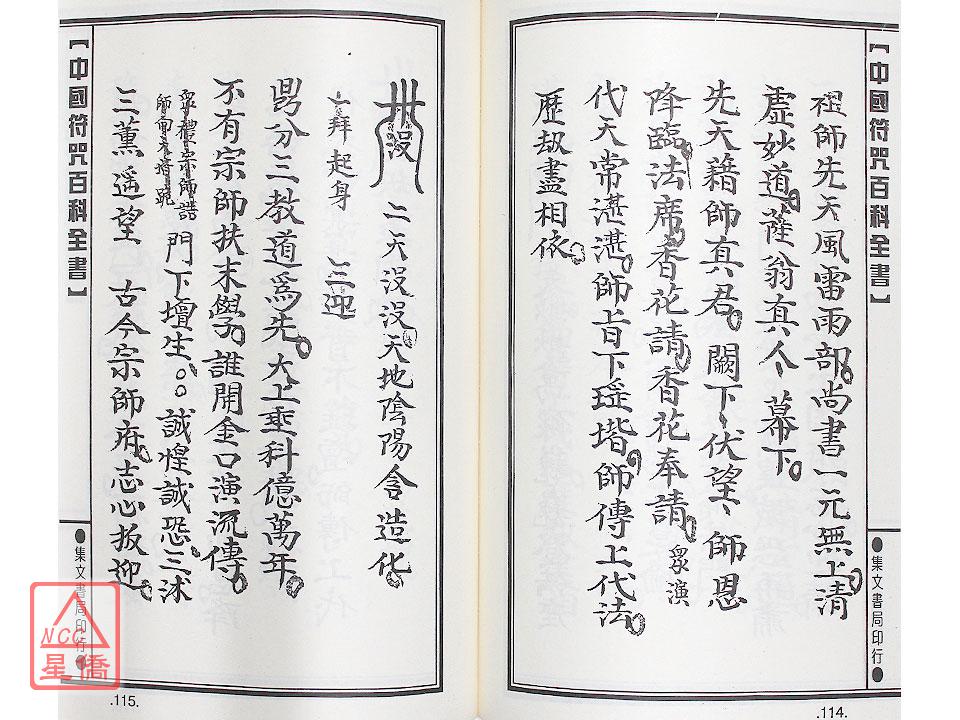 【中國符咒百科全書】
祖師先天風雷雨部尚書一元無上清
虛妙道薩翁真人、幕下
先天籍師真君闕下、伏望、師恩
降臨法席香花請香花奉請眾演
代天常湛湛師旨下瑶堦師傳上代法
歷刼盡相依
●集文書局印行●
.114.
二天沒沒天地陰陽含造化
一拜起身 三迎
분三教道為先大上垂科億萬年
不有宗師扶末學誰開金口演流傳
眾禮宗師語
門下壇生。。誠惶誠恐三述
三薰遥望 古今宗師府志心皈迎
【中國符咒百科全書】
●集文書局印行●
.115.
NCC
星僑